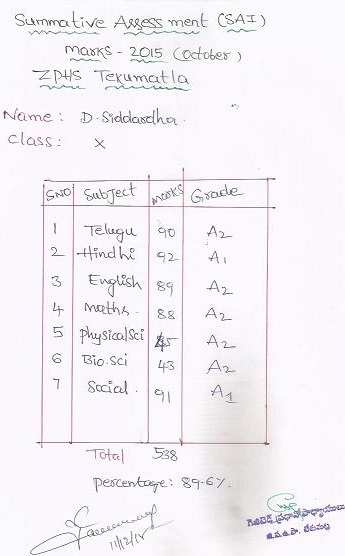 Summative Assessment (SAI)
Marks - 2015 (October)
ZPHS Tekumatla
Name : D. Siddardha.
Class : X
SNO Subject Marks Grade
1 Telugu 90 A2
2 Hindhi 92 A1
3 English 89 A2
4 Maths. 88 A2
5 Physical Sci 45 A2
6 Bio.Sci 43 A2
7 Social. 91 A1
Total 538
Percentage: 89.6%
గెజిటెడ్ ప్రధానోపాధ్యాయులు